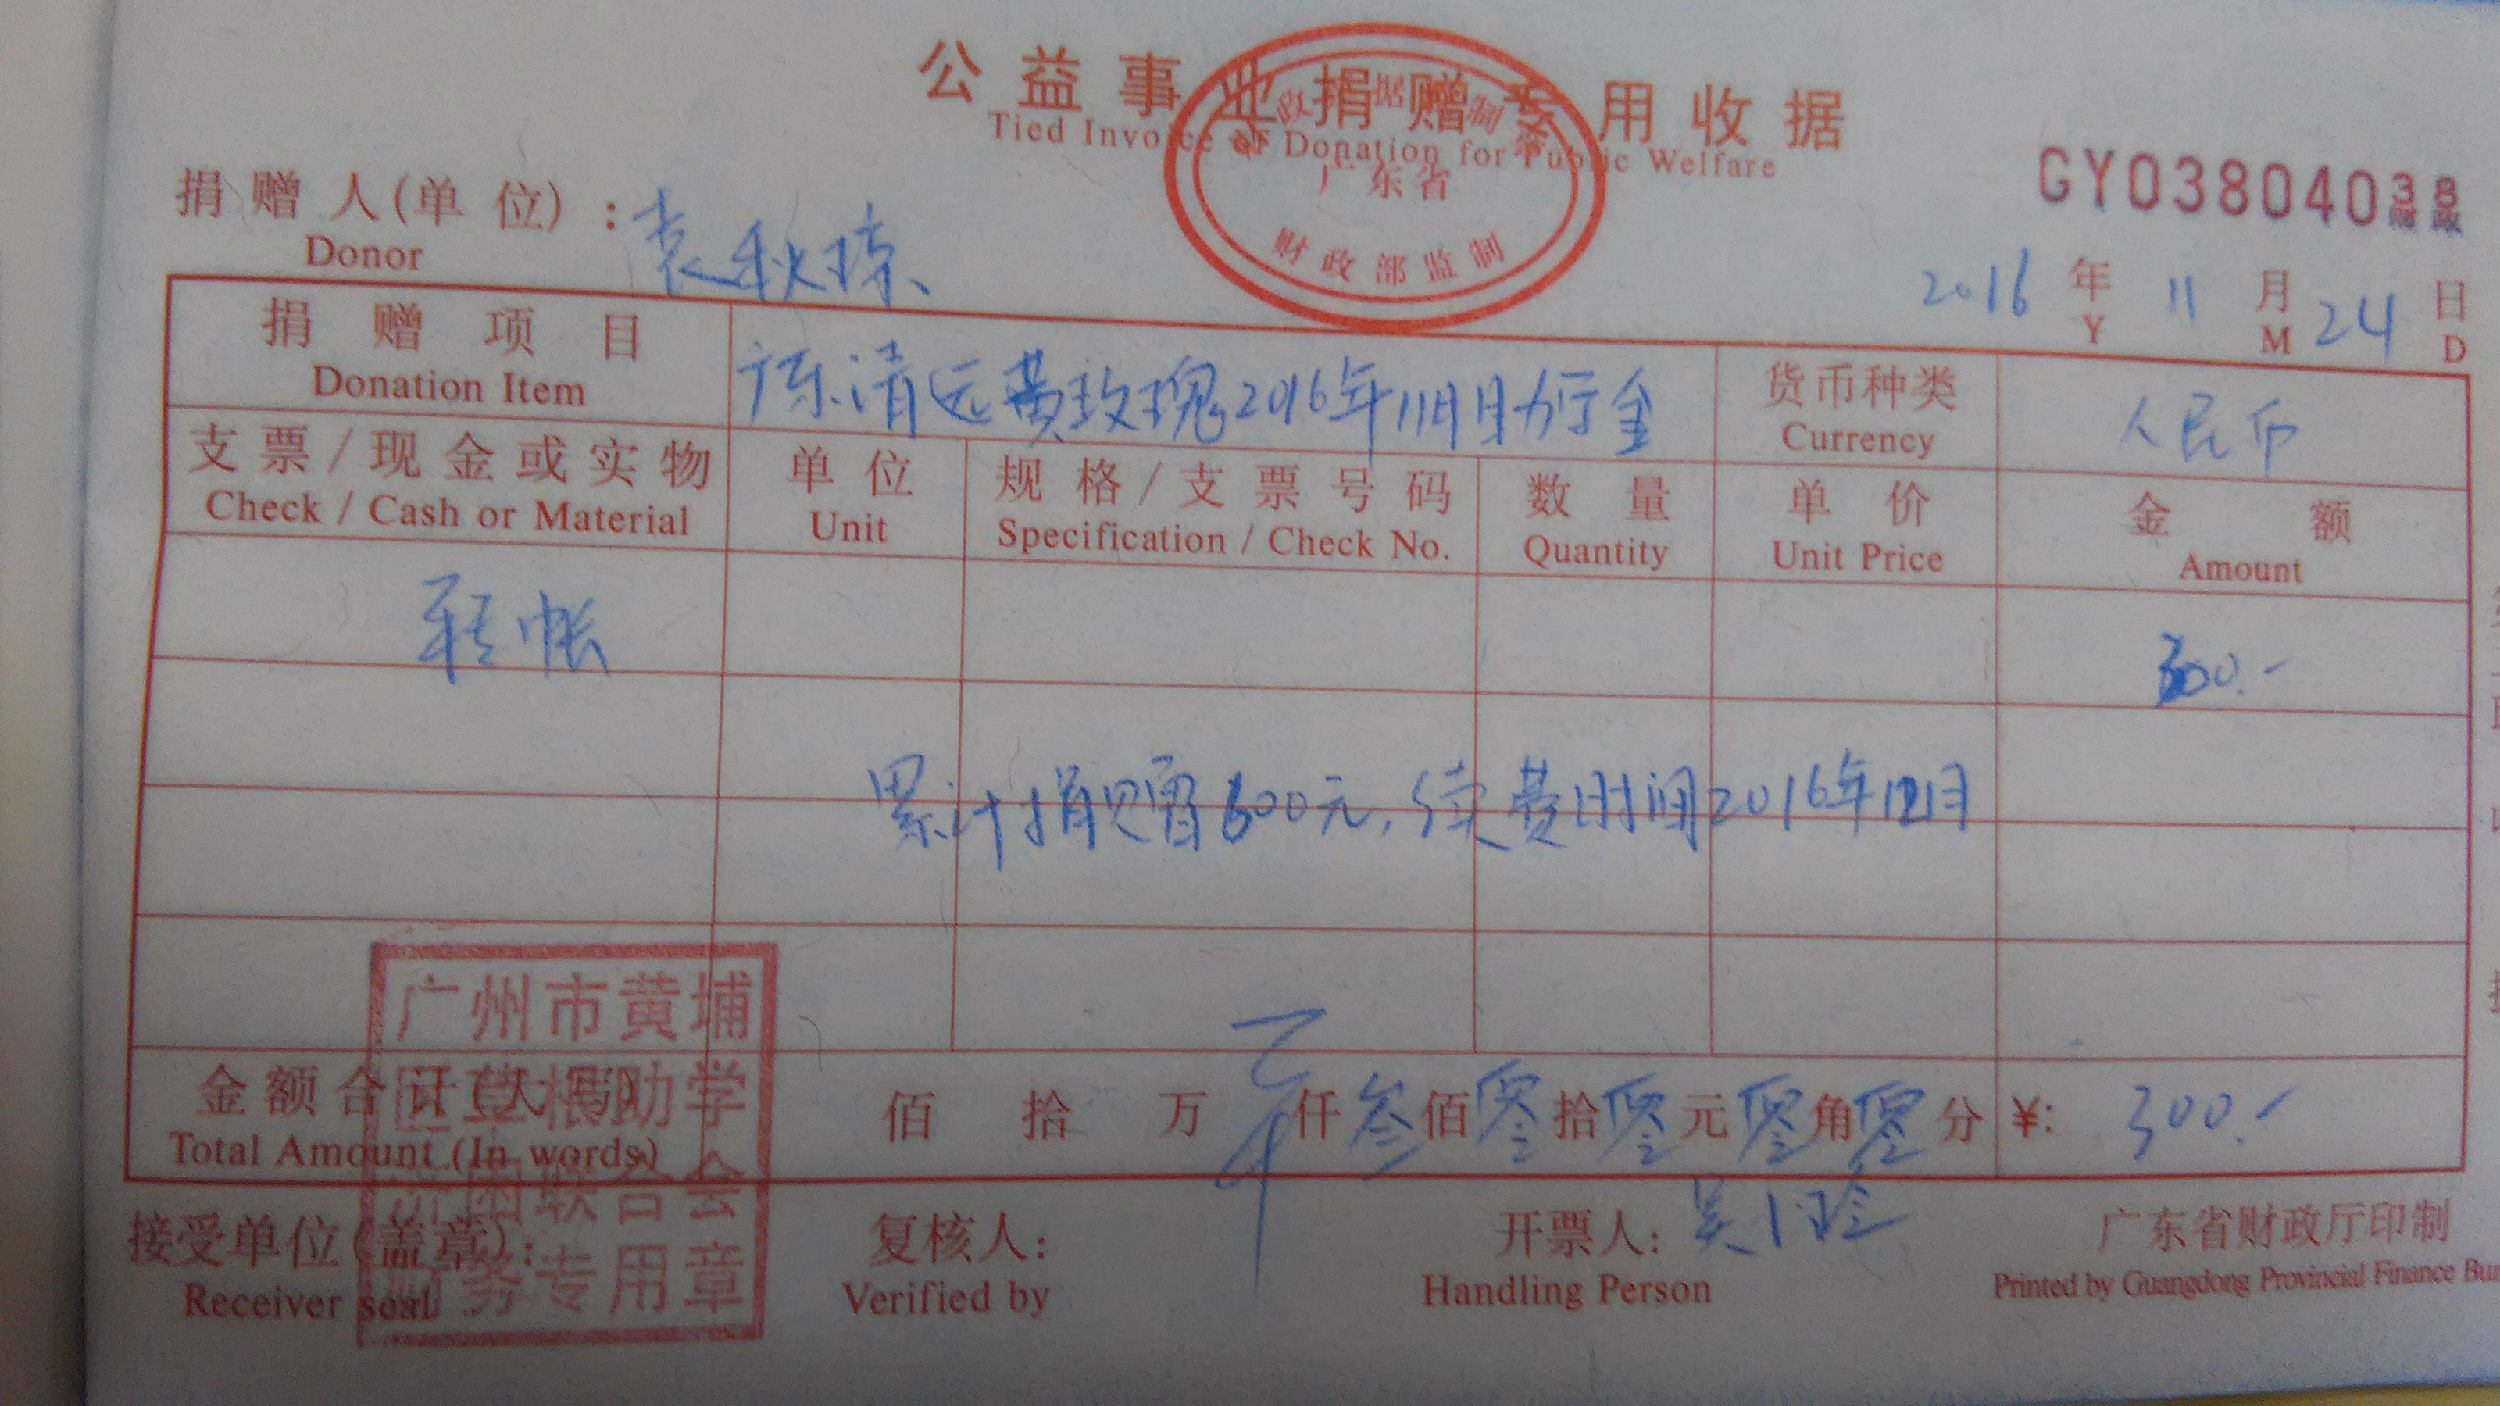 公益事业捐赠专用收据
Tied Invoice of Donation for Public Welfare
广东省
财政部监制
GY03804038
捐赠人(单位):袁秋琼
Donor
2016年11月24日
Y M D
捐赠项目 广东清远黄玫瑰2016年11月助学金 货币种类 人民币
Donation Item Currency
支票/现金或实物 单位 规格/支票号码 数量 单价 金额
Check / Cash or Material Unit Specification / Check No. Quantity Unit Price Amount
转帐 300.-
累计捐赠600元,续费时间2016年12月
广州市黄埔
区草根助学
济困联合会
财务专用章
金额合计(大写) 佰 拾 万 仟叁佰零拾零元零角零分 ¥: 300.-
Total Amount (In words)
接受单位(盖章): 复核人: 开票人: 广东省财政厅印制
Receiver seal Verified by Handling Person Printed by Guangdong Provincial Finance Bu